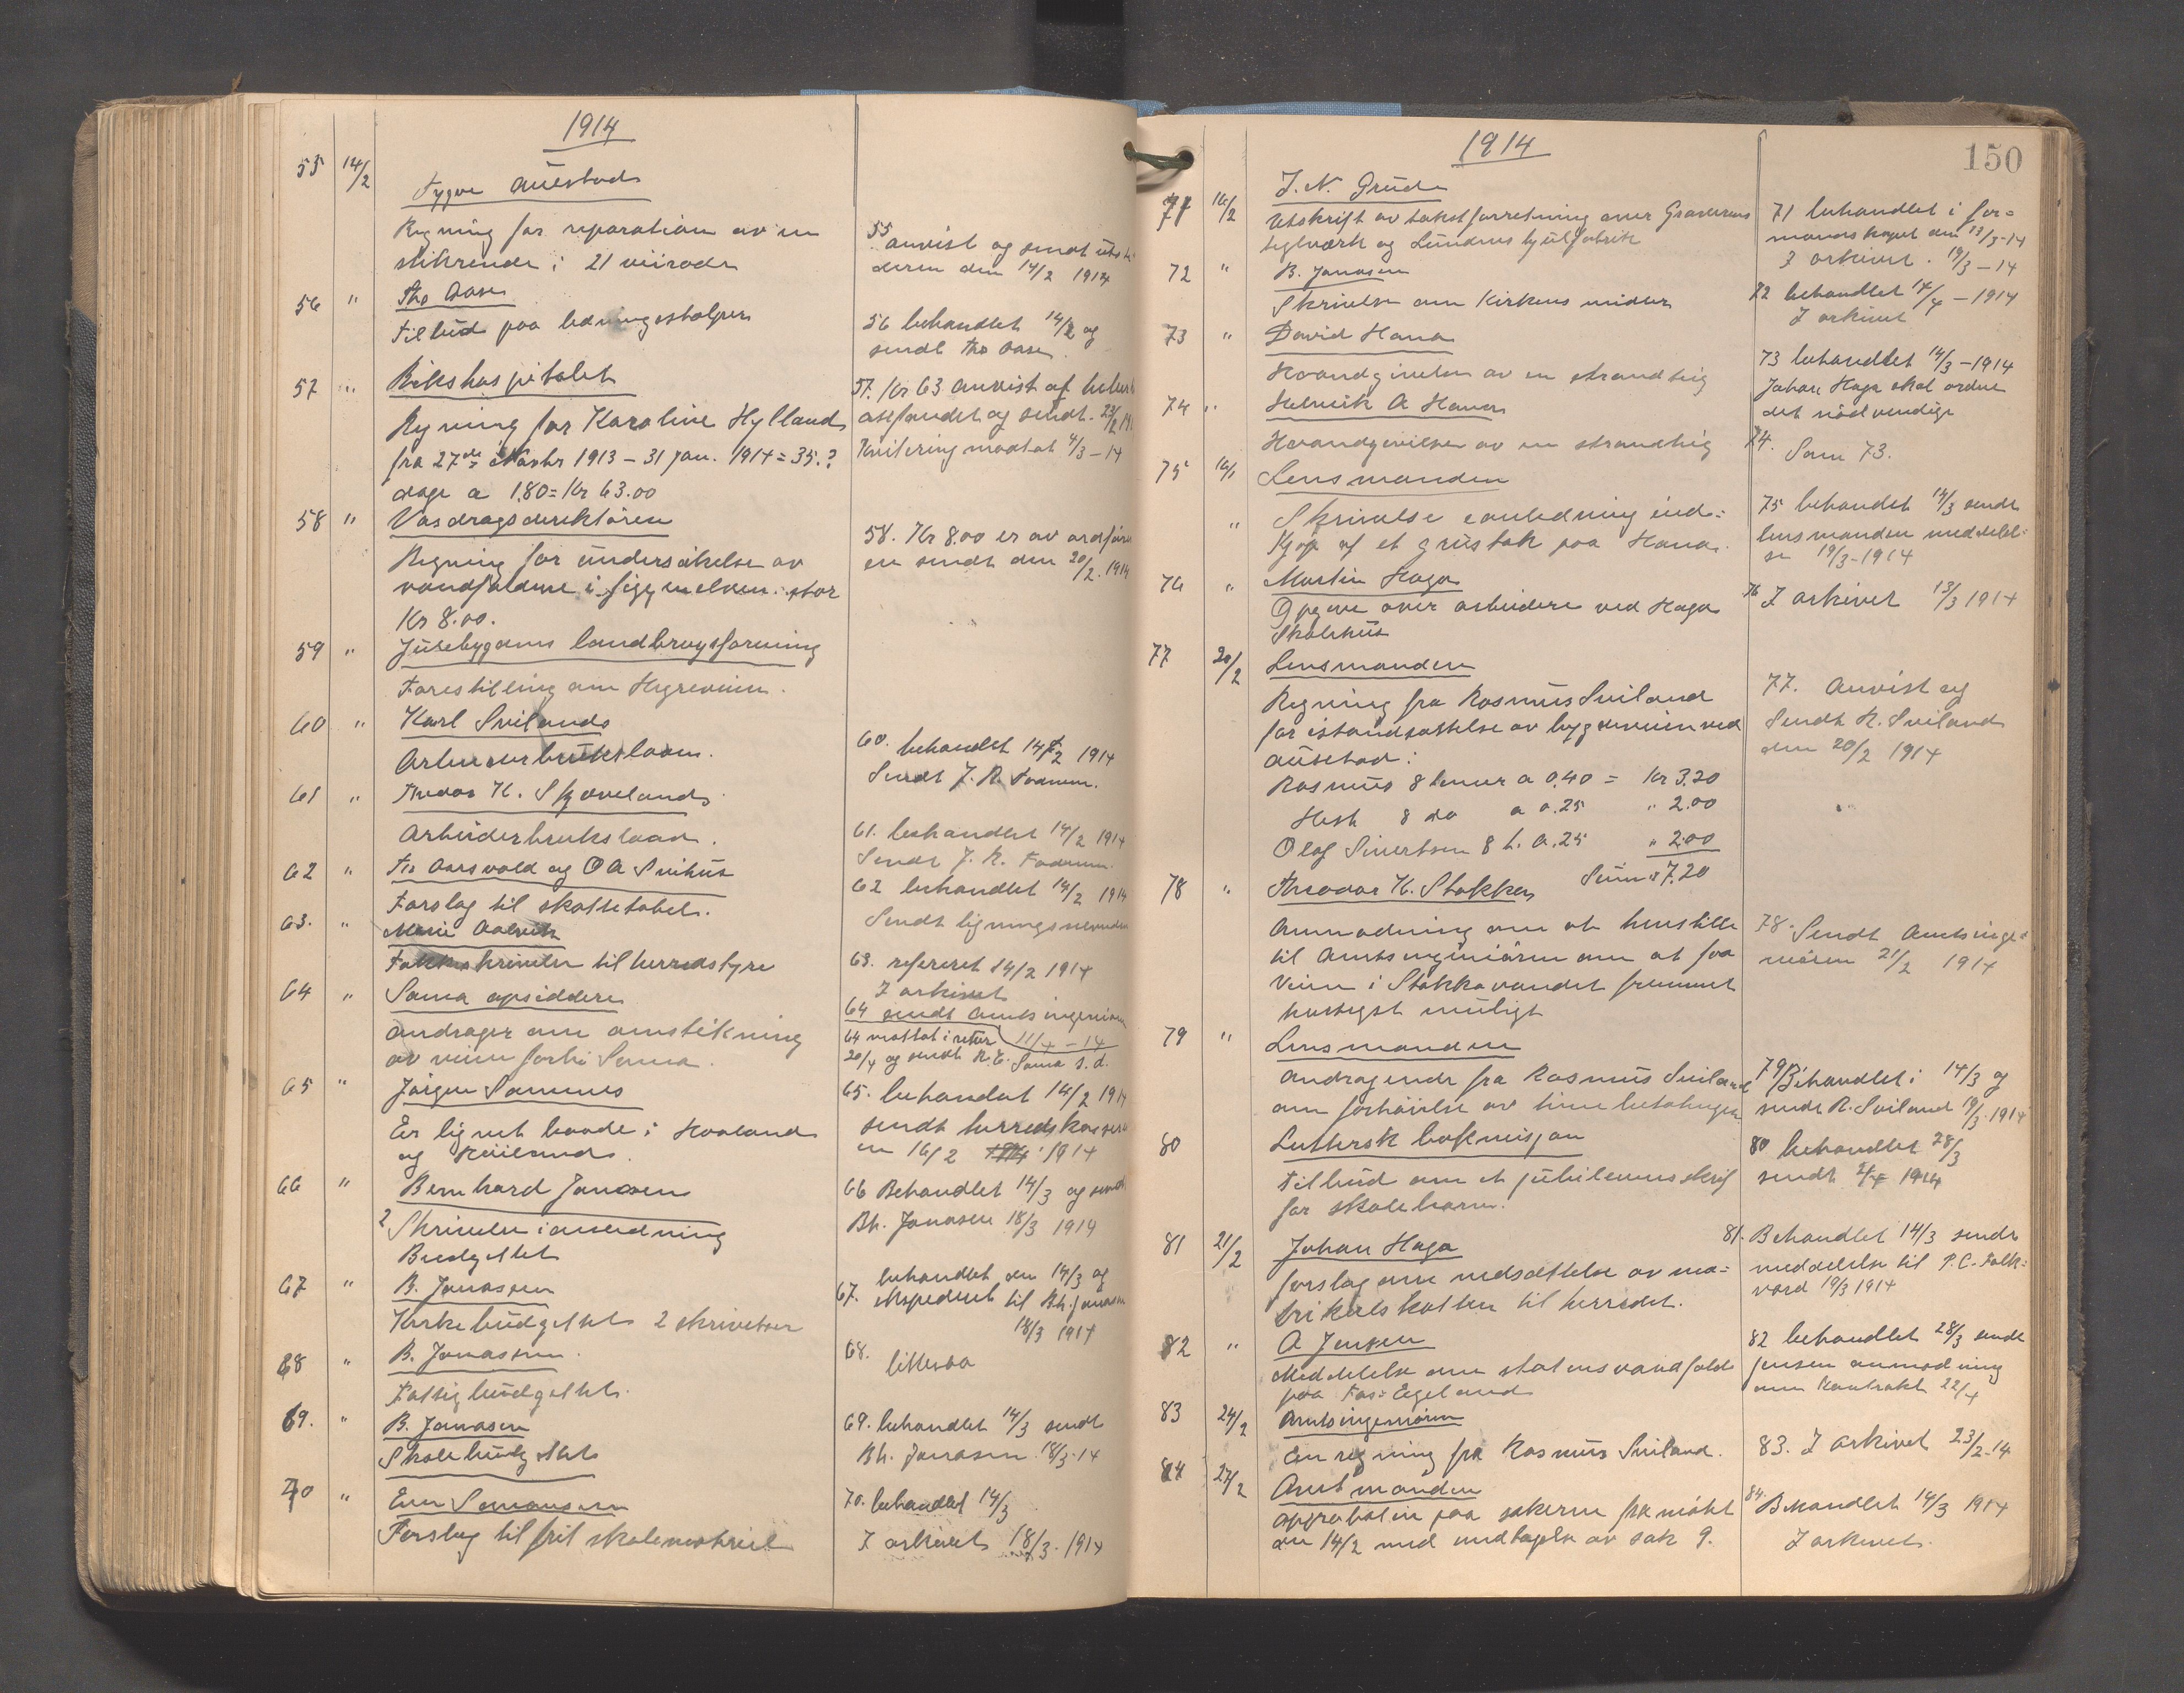 1914
55 14/2
Tygve Auestad
Regning for reparation av en
stikrende i 21 veirode
55
anvist og sendt
deren den 14/2 1914
56 " Tho Aase
Tilbud paa ledningsstolper
56 behandlet 14/2 og
sendt Tho Aase.
57 " Rikshospitalet
Regning for Karoline Hylland
fra 27de 1913 – 31 jan. 1914 = 35.?
dage a 1.80 = Kr 63.00
57. Kr 63 anvist af
og sendt. 23/2
Kvitering mottat 4/3 – 14
58 " Vasdragsdirektøren
Regning for undersøkelse av
vandfaldene i stor
Kr 8.00.
58. Kr 8.00 er av
en sendt den 20/2. 1914
59 " landbrugsforening
Forestilling om
60 " Karl Svilands
Arbeiderbrukslaan.
60. behandlet 14/2 1914
Sendt J. R.
61 " H. Skjævelands
Arbeiderbrukslaan.
61. behandlet 14/2 1914
Sendt J. R.
62 " Aarsvold og O A Svihus
Forslag til skattetabel.
62 behandlet 14/2 1914
Sendt ligningsnevnden
63. " Marie
til herredstyre
63. referert 14/2 1914
I arkivet
64 " Soma opsiddere
andrager om omstikning
av veien forbi Soma.
64 sendt Amtsingeniøren
11/4 – 14
64 mottat i retur
20/4 og sendt R. E. Soma s.d.
65 " Jørgen Sømmes
Er lignet baade i Haaland
og
65. behandlet 14/2 1914
sendt herredskasser
en 16/2 1914
66 " Bernhard Jonasen
2 Skrivelser i anledning
Budgettet
66 Behandlet 14/3 og sendt
Bh. Jonasen 18/3 1914
67 " B. Jonassen
Kirkebudgettet 2 skrivelser
67. behandlet den 14/3 og
ekspedert til Bh. Jonasen
18/3 1914
68 " B. Jonassen.
Fattigbudgettet.
68.
likesaa
69. " B. Jonasen
Skolebudgettet
69. behandlet 14/3 sendt
Bh. Jonasen 18/3-14
70 "
Forslag til frit skolematriel
70. behandlet 14/3
I arkivet 18/3. 1914
1914
150
71 16/2 J. N. Grude
Utskrift av takstforretning over Graverens
teglværk og Lundens hjulfabrik
71 behandlet i for=
mandskapet den 13/3-14
I arkivet. 19/3 – 14
72 " B. Jonasen
Skrivelse om Kirkens midler
72 behandlet 14/4 – 1914
I arkivet
73 " David Hana
av en strandteig
73 behandlet 14/3 – 1914
Johan Haga skal ordne
det nødvendige
74 " Henrik A Hana
av en strandteig
74. Som 73.
75 16/2 Lensmanden
" Skrivelse i anledning ind=
kjøp af et grustak paa Hana.
75 behandlet 14/3 sendt
lensmanden meddelel=
se 19/3-1914
76 " Martin Haga
Opgave over arbeidere ved Haga
Skolehus
76 I arkivet 13/3 1914
77 20/2 Lensmanden
Regning fra Rasmus Sviland
for istandsættelse av bygdeveien ved
Auestad:
Rasmus 8 timer a 0.40 = Kr 3.20
Hest 8 do a 0.25 " 2.00
Olaf Sivertsen 8 t. a. 25 " 2.00
Sum 7.20
77. Anvist og
Sendt R. Sviland
den 20/2 1914
78 " Theodor K. Stokken
Anmodning om at henstille
til Amtsingeniøren om at faa
Veien i Stokkavandet fremmet
hurtigst muligt
78. Sendt Amtsinge=
niøren 21/2 1914
79 " Lensmanden
Andragende fra Rasmus Sviland
om forhøielse av timebetalingen
79 Behandlet i 14/3 og
sendt R. Sviland 19/3-1914
80 Luthersk bokmisjon
Tilbud om et jubileumsskrift
for skolebarn.
80 behandlet 28/3
sendt 2/4 1914
81 21/2 Johan Haga
forslag om nedsættelse av ma=
trikelskatten til herredet.
81. Behandlet 14/3 sendt
meddelelse til P.C. Folk=
vord 19/3 1914
82 " A Jensen
Meddelelse om statens vandfald
paa Egeland
82 behandlet 28/3 sendt
Jensen anmodning
om Kontrakt 22/4
83 24/2 Amtsingeniøren
En regning fra Rasmus Sviland.
83. I arkivet 23/2-14
84 27/2 Amtmanden
approbation paa sakerne fra møtet
den 14/2 med undtagelse av sak 9.
84. Behandlet 14/3 1914
I arkivet.